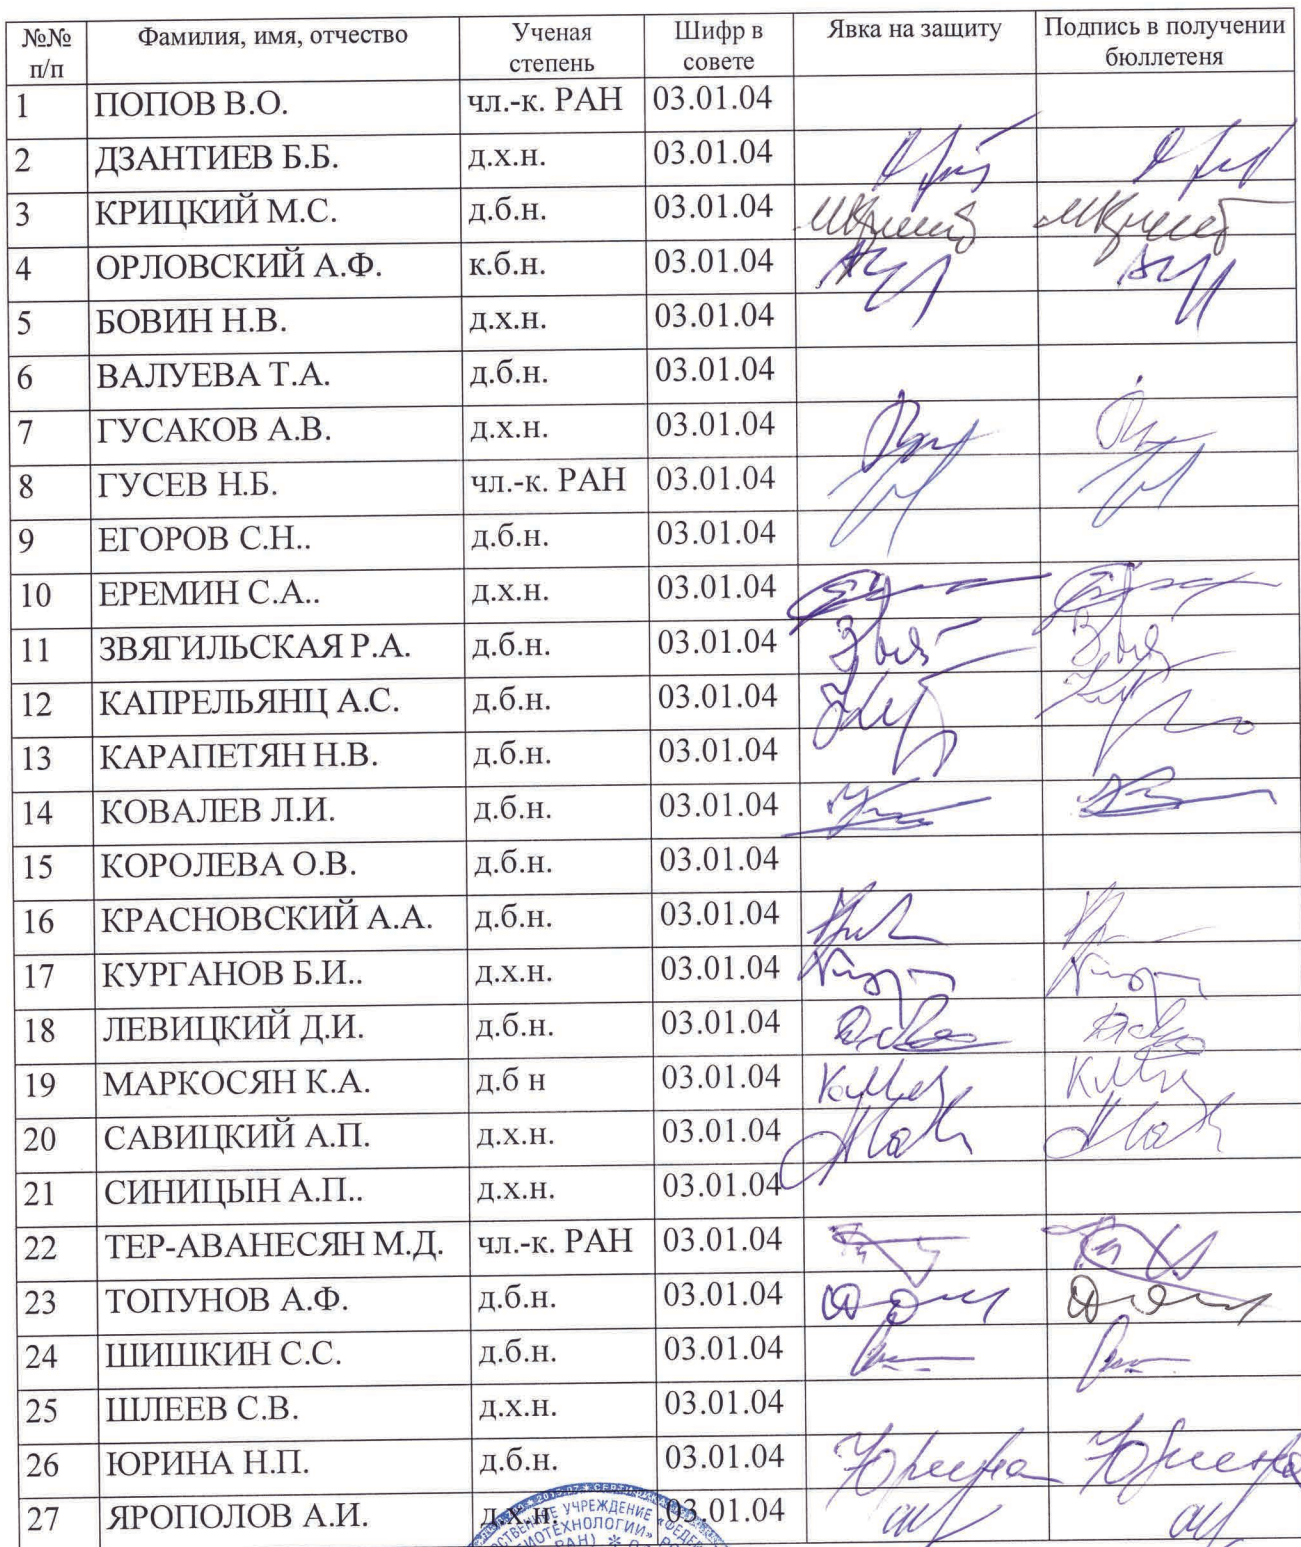 №№ п/п Фамилия, имя, отчество Ученая степень Шифр в совете Явка на защиту Подпись в получении бюллетеня
1 ПОПОВ В.О. чл.-к. РАН 03.01.04
2 ДЗАНТИЕВ Б.Б. д.х.н. 03.01.04
3 КРИЦКИЙ М.С. д.б.н. 03.01.04
4 ОРЛОВСКИЙ А.Ф. к.б.н. 03.01.04
5 БОВИН Н.В. д.х.н. 03.01.04
6 ВАЛУЕВА Т.А. д.б.н. 03.01.04
7 ГУСАКОВ А.В. д.х.н. 03.01.04
8 ГУСЕВ Н.Б. чл.-к. РАН 03.01.04
9 ЕГОРОВ С.Н.. д.б.н. 03.01.04
10 ЕРЕМИН С.А.. д.х.н. 03.01.04
11 ЗВЯГИЛЬСКАЯ Р.А. д.б.н. 03.01.04
12 КАПРЕЛЬЯНЦ А.С. д.б.н. 03.01.04
13 КАРАПЕТЯН Н.В. д.б.н. 03.01.04
14 КОВАЛЕВ Л.И. д.б.н. 03.01.04
15 КОРОЛЕВА О.В. д.б.н. 03.01.04
16 КРАСНОВСКИЙ А.А. д.б.н. 03.01.04
17 КУРГАНОВ Б.И.. д.х.н. 03.01.04
18 ЛЕВИЦКИЙ Д.И. д.б.н. 03.01.04
19 МАРКОСЯН К.А. д.б н 03.01.04
20 САВИЦКИЙ А.П. д.х.н. 03.01.04
21 СИНИЦЫН А.П.. д.х.н. 03.01.04
22 ТЕР-АВАНЕСЯН М.Д. чл.-к. РАН 03.01.04
23 ТОПУНОВ А.Ф. д.б.н. 03.01.04
24 ШИШКИН С.С. д.б.н. 03.01.04
25 ШЛЕЕВ С.В. д.х.н. 03.01.04
26 ЮРИНА Н.П. д.б.н. 03.01.04
27 ЯРОПОЛОВ А.И. д.х.н. 03.01.04
УЧРЕЖДЕНИЕ